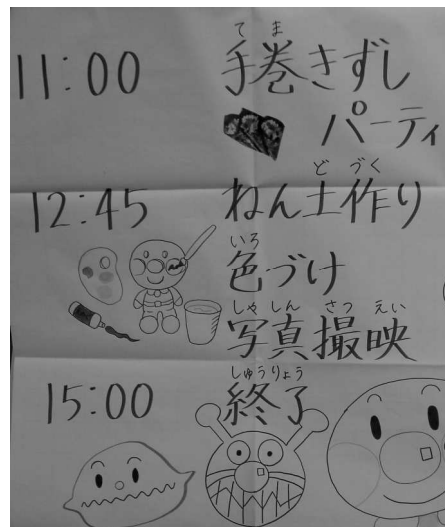 11:00 手巻きずし
てま
パーティ
12:45 ねん土作り
どづく
色づけ
いろ
写真撮影
しゃしん さつえい
15:00 終了
しゅうりょう